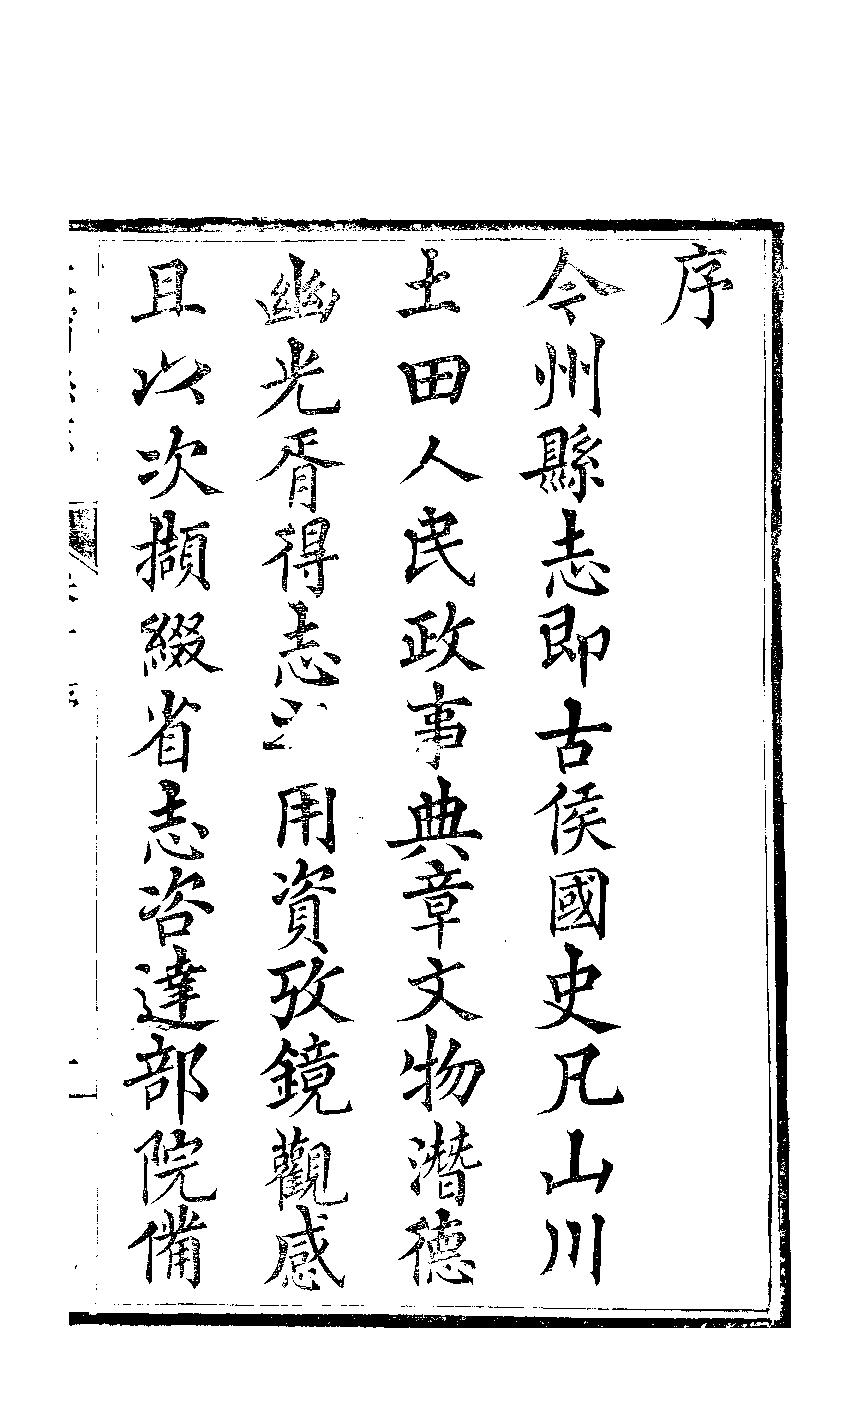 序
今州縣志即古侯國史凡山川
土田人民政事典章文物潛德
幽光胥得志用資攷鏡觀感
且以次擷綴省志咨達部院備